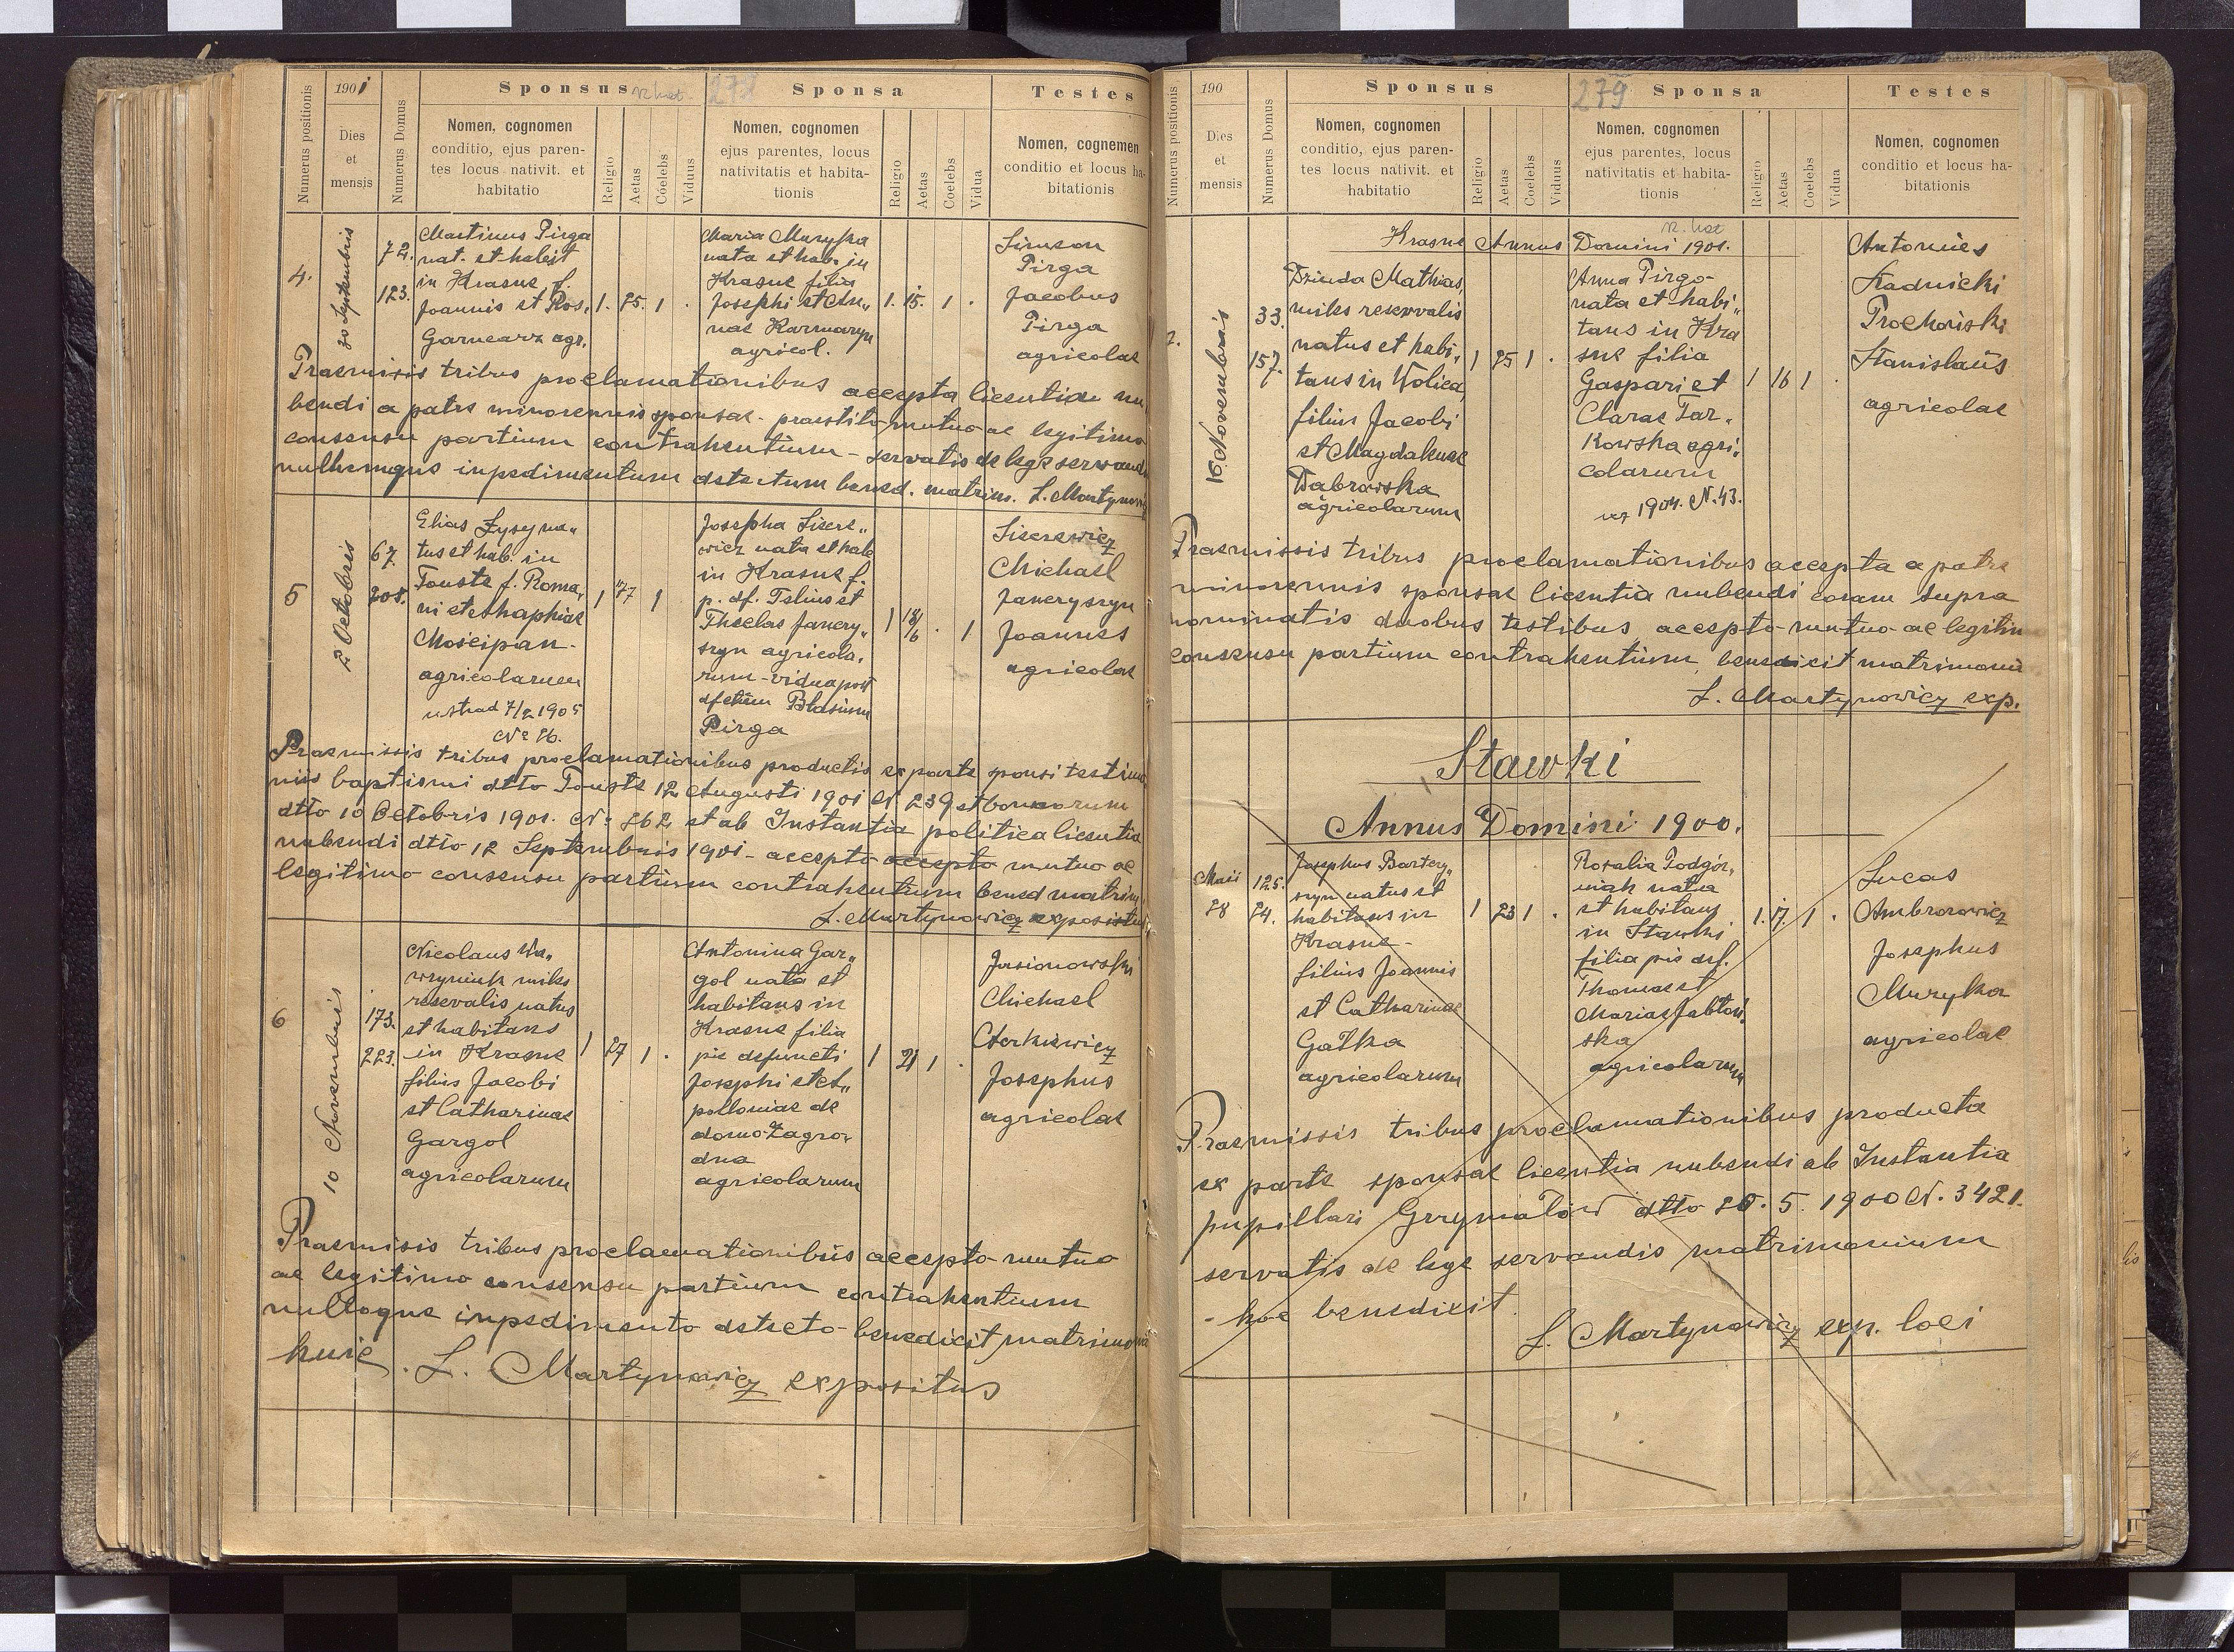 Numerus positionis
1901
Dies
et
mensis
Numerus Domus
Sponsus
Nomen, cognomen
conditio, ejus paren-
tes locus nativit. et
habitatio
Religio
Aetas
Coelebs
Viduus
Sponsa
Nomen, cognomen
ejus parentes, locus
nativitatis et habita-
tionis
Religio
Aetas
Coelebs
Vidua
Testes
Nomen, cognemen
conditio et locus ha-
bitationis
4.
30 Septembris
72.
123.
Martinus Pirga
nat. et habit
in Krasne f.
Joannis et Ros.
Garncarz agr.
1. 25. 1 .
Maria Muryka
nata et hab. in
Krasne filia
Josephi et An„
nae Karmaryn
agricol.
1. 15. 1 .
Simeon
Pirga
Jacobus
Pirga
agricolae
Praemissis tribus proclamationibus accepta licentia nu
bendi a patre minorennis sponsae - praestito mutuo ac legitimo
consensu partium contrahentium - servatis de lege servand
nullumque inpedimentum detectum bened. matrim. L. Martynowi
5
2 Octobris
67.
208.
Elias Łysy na„
tus et hab. in
Touste f. Roma„
ni et Ahaphiae
Mościpan -
agricolarum
ustrad 7/2 1905
No 26.
1 27 1
Josepha Lisere„
wicz nata et hab
in Krasne f.
p. df. Felius et
Theclae Janery„
szyn agricola„
rum - vidua post
dfctum Blasium
Pirga
1 18/6 . 1
Liserewicz
Michael
Janeryszyn
Joannes
agricolae
Praemissis tribus proclamationibus productis ex parte sponsi testimo
niis baptismi dtto Touste 12 Augusti 1901 N 239 et bannorum
dtto 10 Octobris 1901. No 262 et ab Instantia politica licentia
nubendi dtto 12 Septembris 1901 - accepto accepto mutuo ac
legitimo consensu partium contrahentium bened matrim
L. Martynowicz expositus
6
10 Novembris
173.
223.
Nicolaus Wa„
wryniuk miles
reservalis natus
et habitans
in Krasne
filius Jacobi
et Catharinae
Gargol
agricolarum
1 27 1 .
Antonina Gar„
gol nata et
habitans in
Krasne filia
pie defuncti
Josephi et A„
polloniae de
domo Zagro„
dna
agricolarum
1 21 1 .
Jasionowski
Michael
Cterkiewicz
Josephus
agricolae
Praemisis tribus proclamationibus accepto mutuo
ac legitimo consensu partium contrahentium
nulloque inpedimento detecto benedicit matrimonio
huic. L. Martynowicz expositus
Numerus positionis
190
Dies
et
mensis
Numerus Domus
Sponsus
Nomen, cognomen
conditio, ejus paren-
tes locus nativit. et
habitatio
Religio
Aetas
Coelebs
Viduus
279
Sponsa
Nomen, cognomen
ejus parentes, locus
nativitatis et habita-
tionis
Religio
Aetas
Coelebs
Vidua
Testes
Nomen, cognomen
conditio et locus ha-
bitationis
Krasne Annus Domini 1901.
16. Novembris
33.
157.
Dziuda Mathias,
miles reservalis
natus et habi„
tans in Wolica,
filius Jacobi
et Magdalenae
Dabrowska
agricolarum
1 25 1 .
Anna Pirga
nata et habi„
tans in Kra
sne filia
Gaspari et
Clarae Tar„
kowska agri„
colarum
1904. N. 43.
1 16 1 .
Antonius
Ładnicki
Prochoiski
Stanislaus
agricolae
Praemissis tribus proclamationibus accepta a patre
minorennis sponsae licentia nubendi coram supra
nominatis duobus testibus accepto mutuo ac legitim
consensu partium contrahentium benedicit matrimoniu
L. Martynowicz exp.
Stawki
Annus Domini 1900.
Maii
28
125.
24.
Josephus Bartczy„
szyn natus et
habitans in
Krasne -
filius Joannis
et Catharinae
Gałka
agricolarum
1 23 1 .
Rosalia Podgór„
niak nata
et habitans
in Stawki
filia pie def.
Thomae et
Mariae Jabłoń„
ska
agricolarum
1. 17. 1 .
Lucas
Ambrorowicz
Josephus
Muryka
agricolae
Praemissis tribus proclamationibus producta
ex parte sponsae licentia nubendi ab Instantia
pupillari Grzymałów dtto 26. 5. 1900 N. 3421.
servatis de lege servandis matrimonium
hoc benedixit.
L. Martynowicz exp. loci